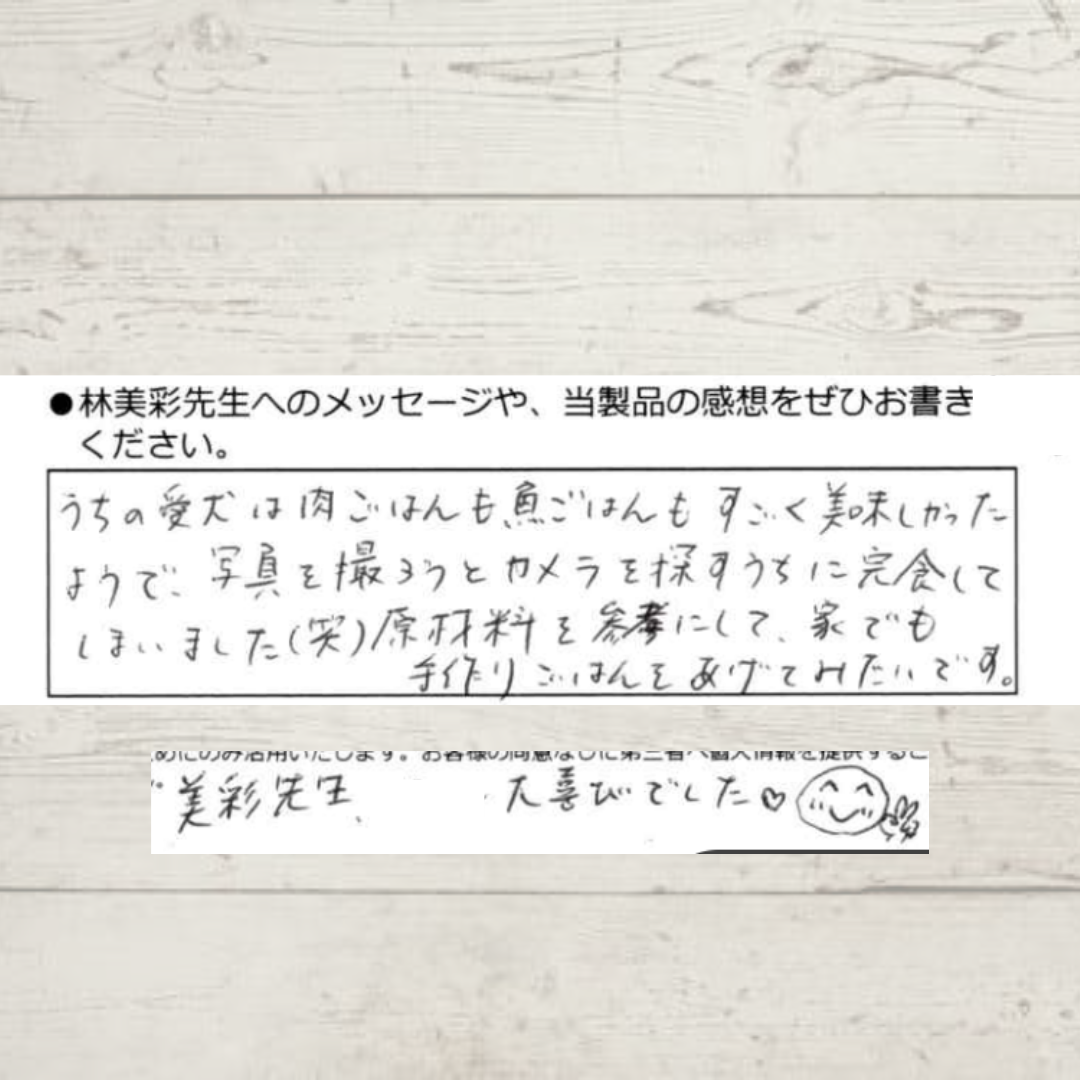 ●林美彩先生へのメッセージや、当製品の感想をぜひお書き
ください。
うちの愛犬は肉ごはんも、魚ごはんもすごく美味しかった
ようで、写真を撮ろうとカメラを探すうちに完食して
しまいました(笑)原材料を参考にして、家でも
手作りごはんをあげてみたいです。
めにのみ活用いたします。お客様の同意なしに第三者へ個人情報を提供するこ
美彩先生、 大喜びでした♡